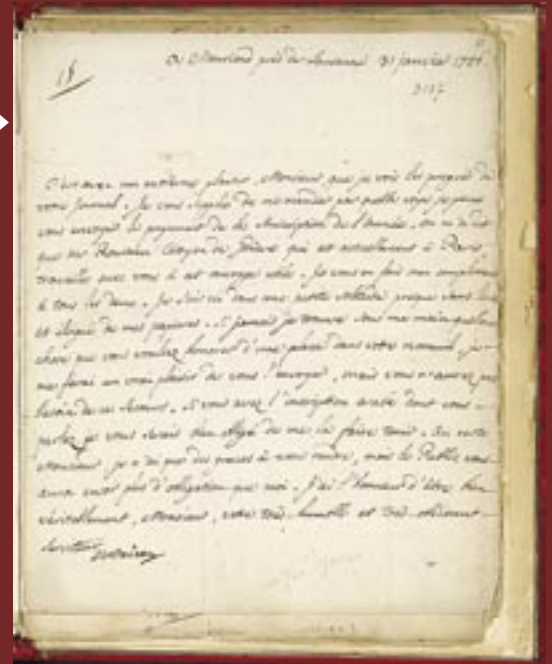 18
A Monriond près de Lausanne 31 janvier
3117
C'est avec un extrême plaisir, Monsieur, que je vois les progrès de
votre journal. Je vous supplie de me mander par quelle voye je peux
vous envoyer le payement de la souscription de l'année. On m'a dit
que Mr Rousseau Citoyen de Genève qui est actuellement à Paris
travaille avec vous à cet ouvrage utile. Je vous en fais mon compliment
à tous les deux. Je suis ici dans une petite solitude presque sans livres
et éloigné de mes papiers. Si jamais je trouve sous ma main quelque
chose que vous vouliez honorer d'une place dans votre recueil, je
me ferai un vrai plaisir de vous l'envoyer, mais vous n'aurez pas
besoin de ce secours. Si vous avez l'inscription arabe dont vous
parlez je vous serais bien obligé de me la faire tenir. Au reste
Monsieur je n'ai que des graces à vous rendre, mais le Public vous
aura encor plus d'obligation que moi. J'ai l'honneur d'être bien
véritablement, Monsieur, votre très humble et très obéissant
serviteur